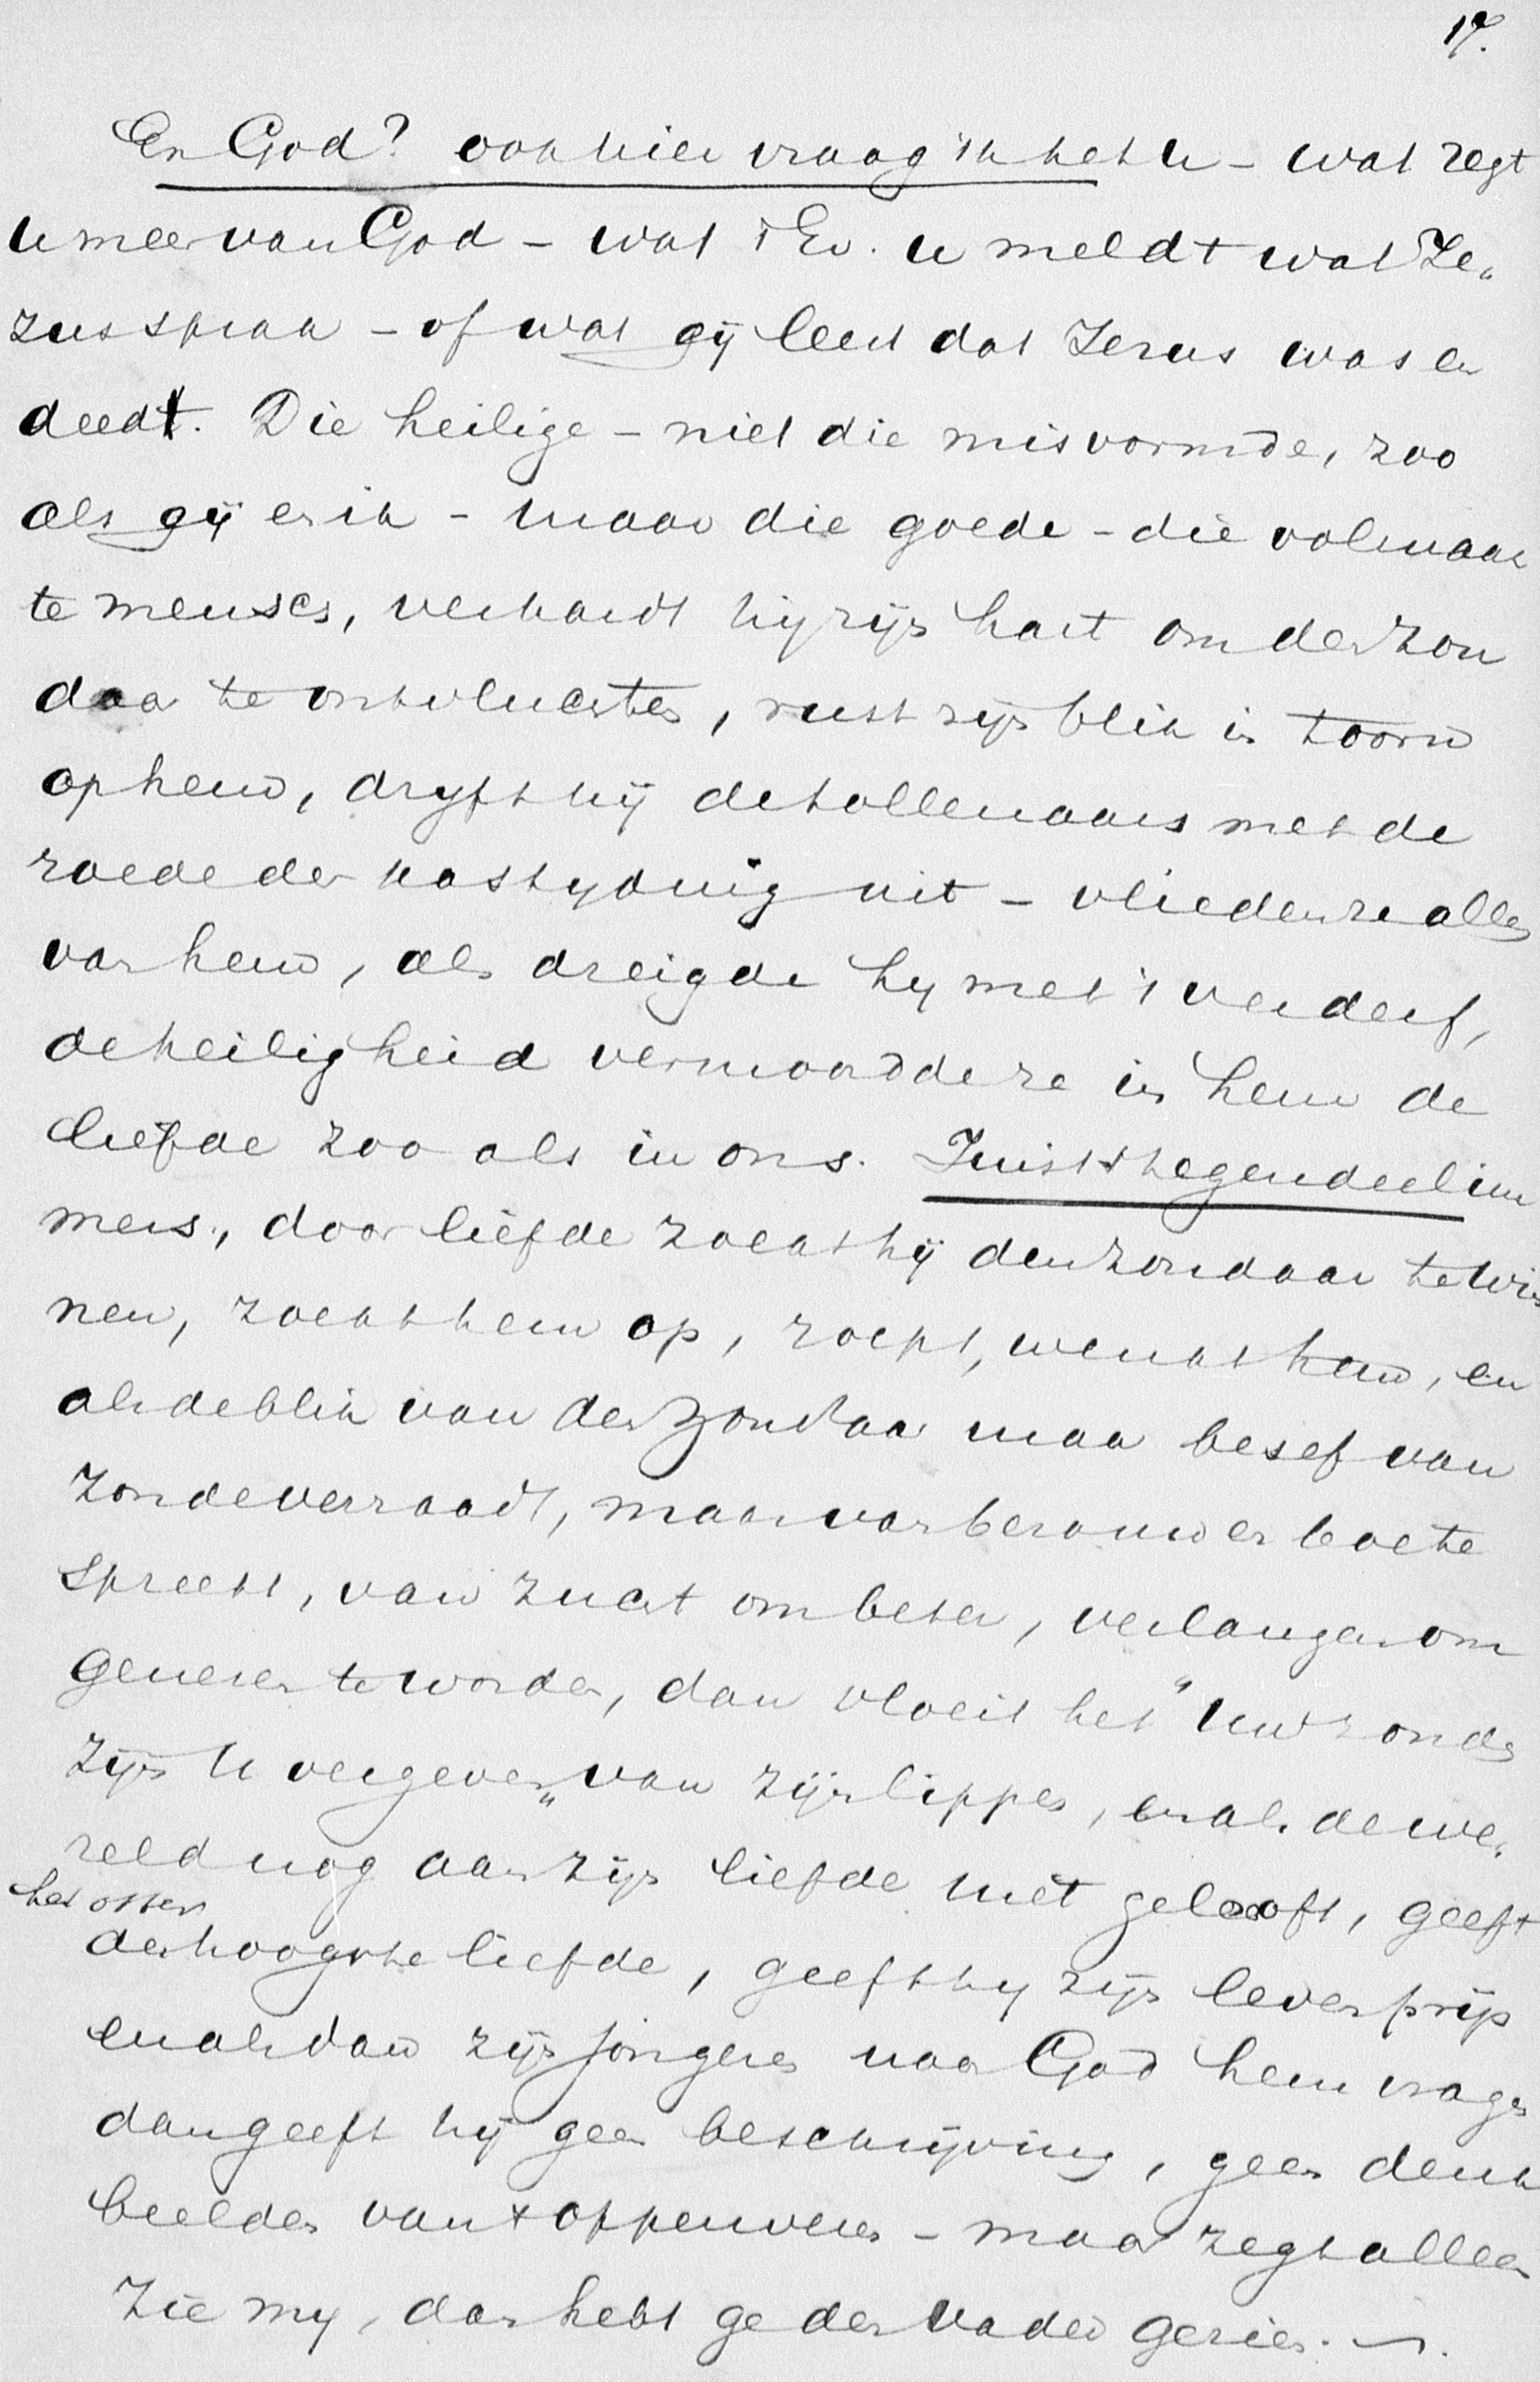 17.
En God? ook hier vraag ik het u - wat zegt
u meer van God - wat 't Ev. u meldt wat Je-
zus sprak - of wat gij leert dat Jezus was en
deedt. Die heilige - niet die misvormde, zoo
als gij en ik - maar die goede - die volmaak
te mensch, verhardt hij zijn hart om den zon
daar te ontvluchten, rust zijn blik in toorn
op hem, dryft hij de tollenaars met de
roede der kastyding uit - vlieden ze allen
van hem, als dreigde hy met 't verderf,
de heiligheid vermoordde ze in hem de
liefde zoo als in ons. Juist 't tegendeel im
mers, door liefde zocht hij den zondaar te win
nen, zocht hem op, roept, wenkt hem, en
als de blik van den zondaar maar besef van
zonde verraadt, maar van berouw en boete
spreekt, van zucht om beter, verlangen om
genezen te worden, dan vloeit het "Uw zonden
zijn U vergeven" van zijn lippen, en als de we-
reld nog aan zijn liefde niet gelooft, geeft
het offer
der hoogste liefde, geeft hy zijn leven prijs
en als dan zijn jongeren naar God hem vragen
dan geeft hij geen beschrijving, geen denk
beelden van 't opperwezen - maar zegt alleen
Zie my, dan hebt ge den Vader gezien.